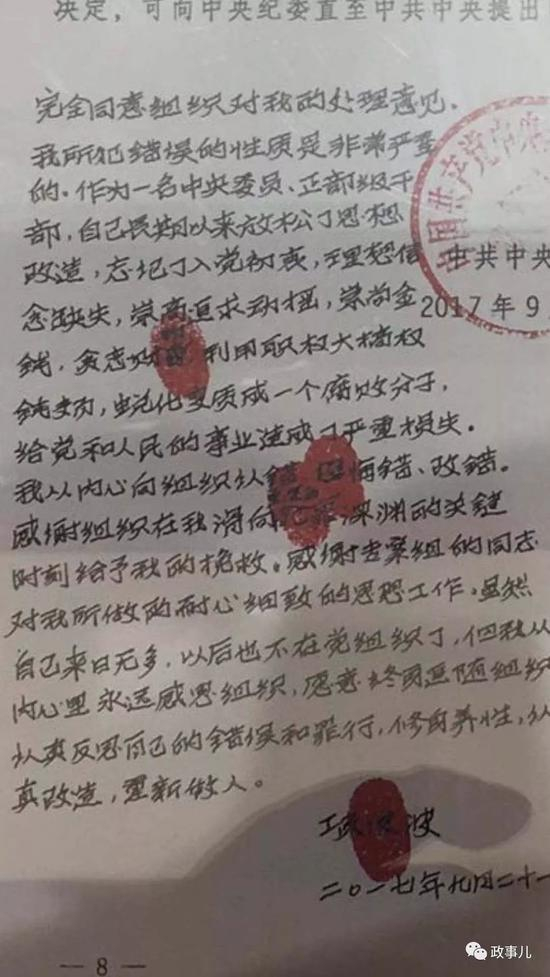 决定，可向中央纪委直至中共中央提出
完全同意组织对我的处理意见。
我所犯错误的性质是非常严重
的。作为一名中央委员、正部级干
部，自己长期以来放松了思想
改造，忘记了入党初衷，理想信
念缺失，崇高追求动摇，崇尚金
钱，贪恋财富 利用职权大搞权
钱交易，蜕化变质成一个腐败分子，
给党和人民的事业造成了严重损失。
我从内心向组织认错 悔错、改错。
感谢组织在我滑向犯罪深渊的关键
时刻给予我的挽救。感谢专案组的同志
对我所做的耐心细致的思想工作。虽然
自己来日无多，以后也不在党组织了，但我从
内心里永远感恩组织，愿意终身追随组织
认真反思自己的错误和罪行，修身养性，认
真改造，重新做人。
中国共产党中央
中共中央
2017年9
项俊波
二〇一七年九月二十一
— 8 —
政事儿